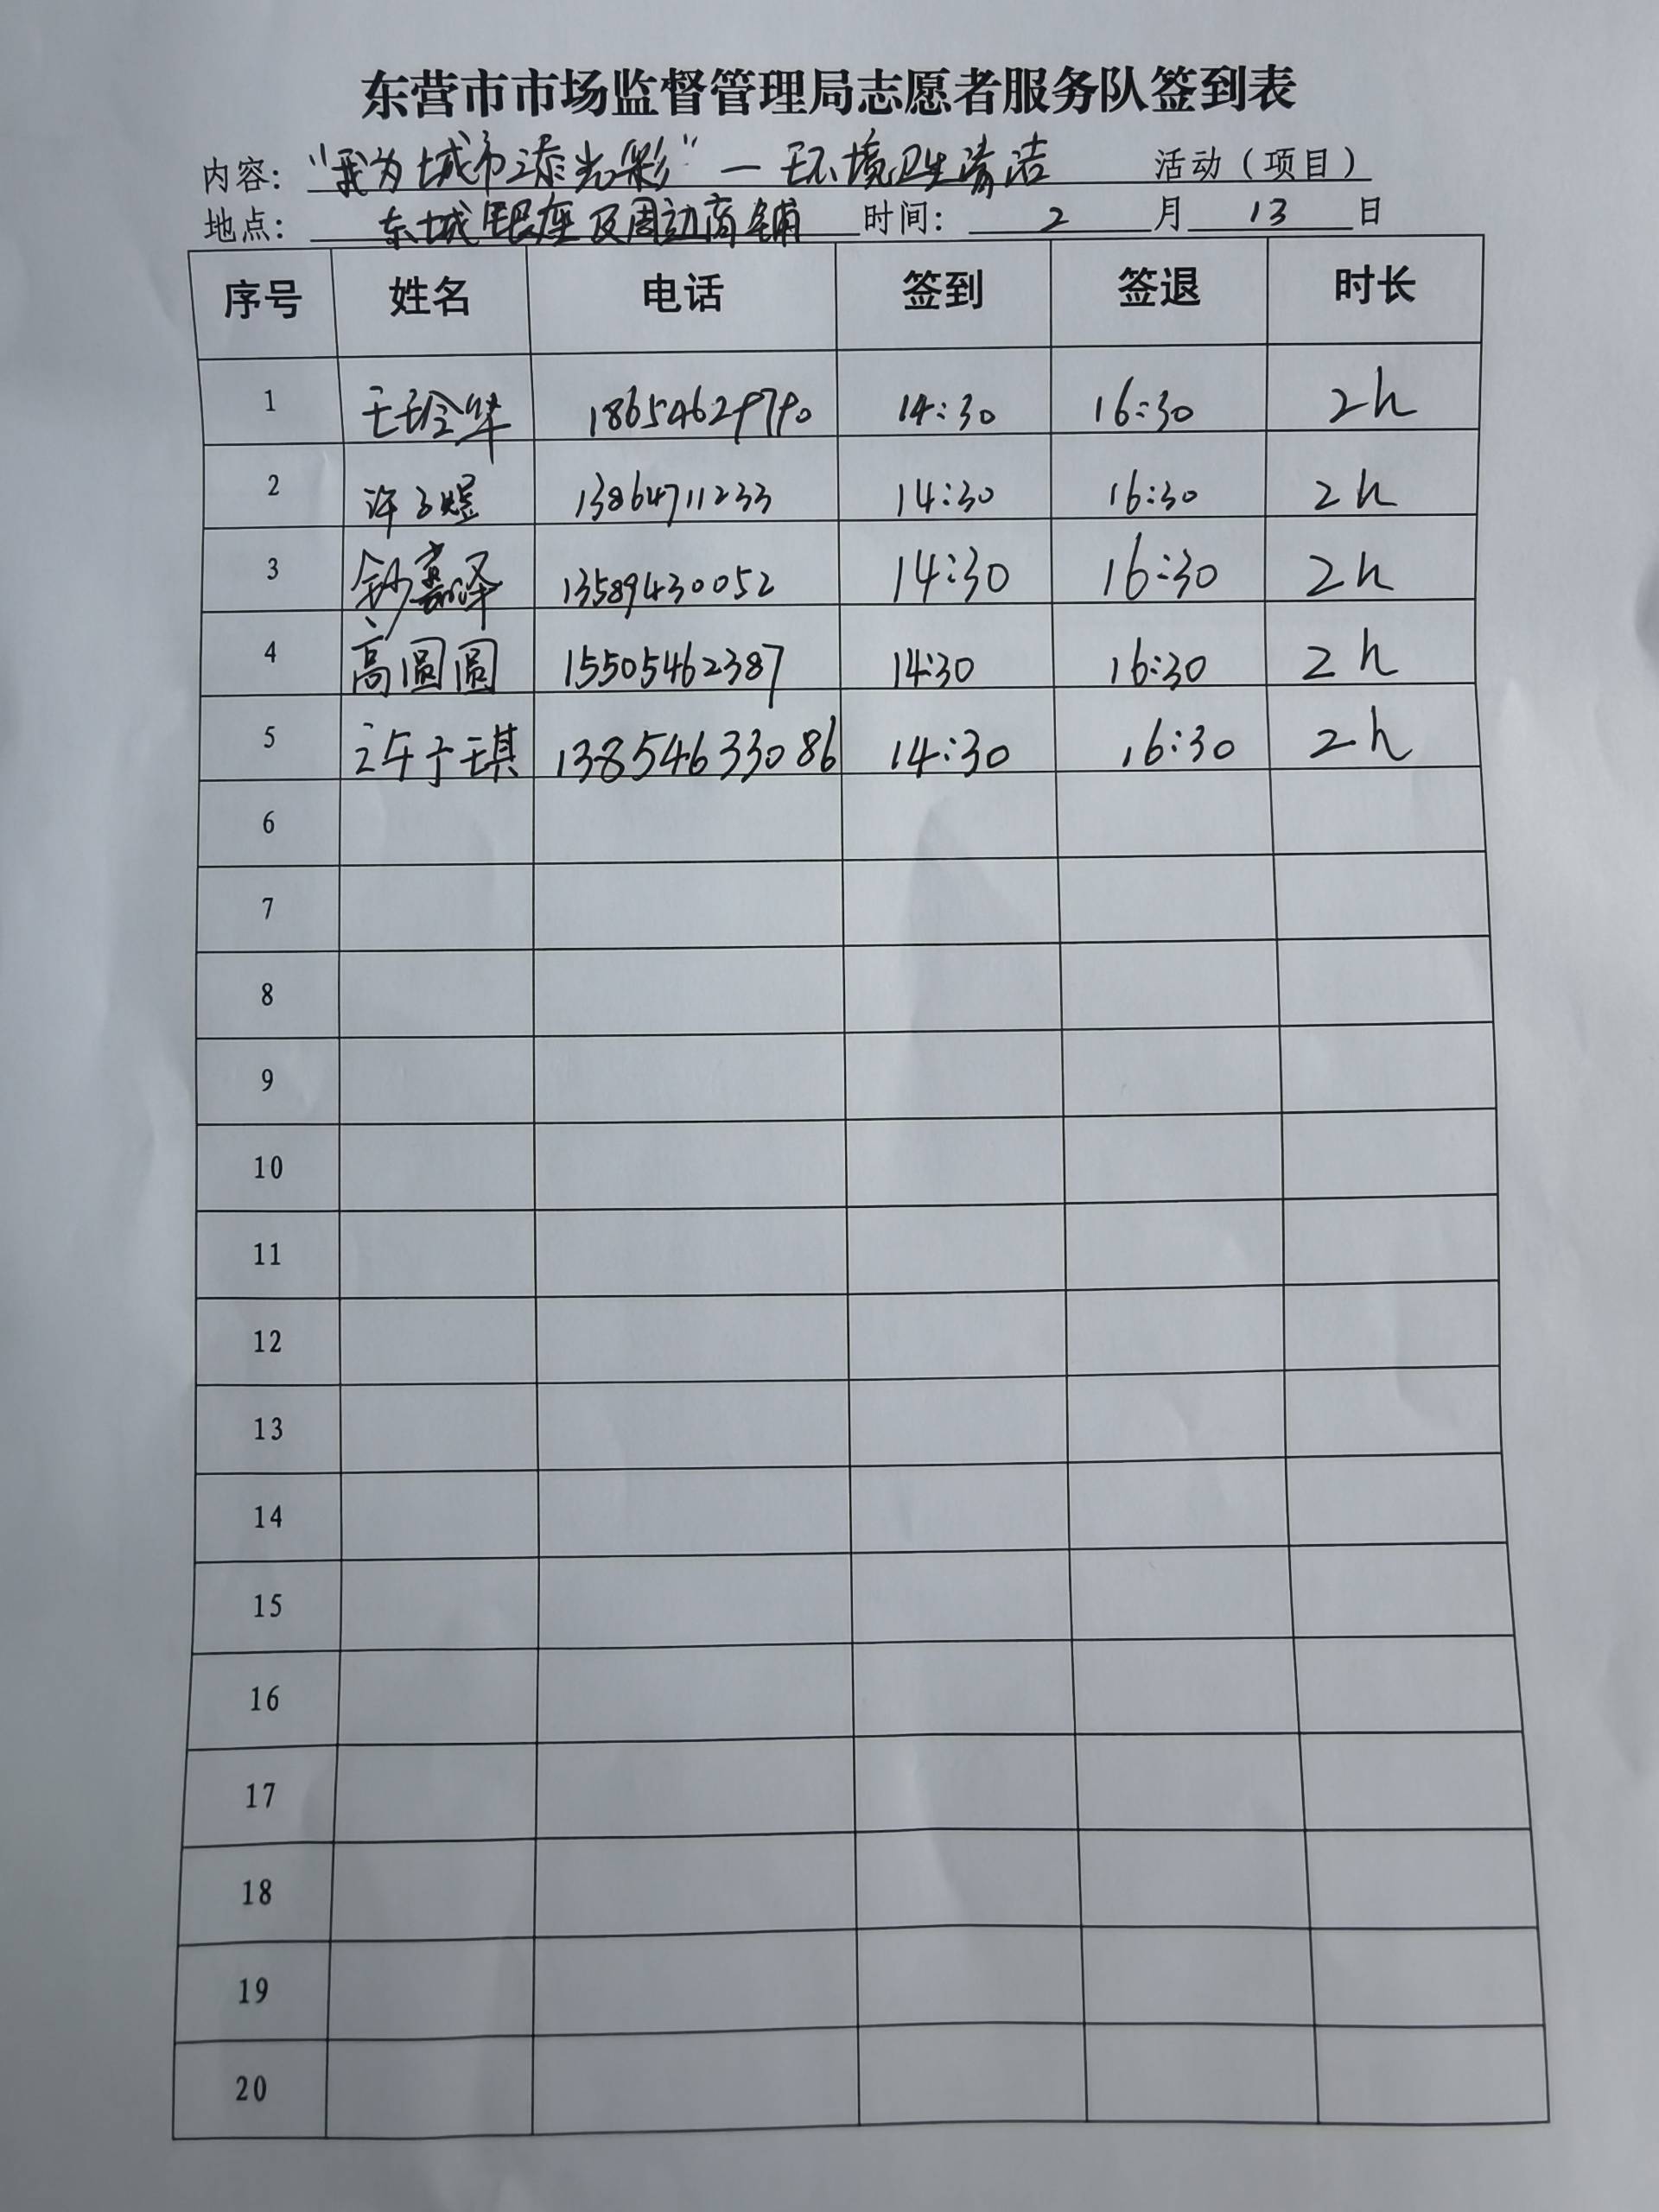 东营市市场监督管理局志愿者服务队签到表
内容："我为城市添光彩"—环境卫生清洁 活动（项目）
地点：东城银座及周边商铺 时间：2月13日
序号 姓名 电话 签到 签退 时长
1 王玲华 18654629790 14:30 16:30 2h
2 许子煜 13864711233 14:30 16:30 2h
3 钞嘉泽 13589430052 14:30 16:30 2h
4 高圆圆 15505462387 14:30 16:30 2h
5 许于琪 13854633086 14:30 16:30 2h
6
7
8
9
10
11
12
13
14
15
16
17
18
19
20